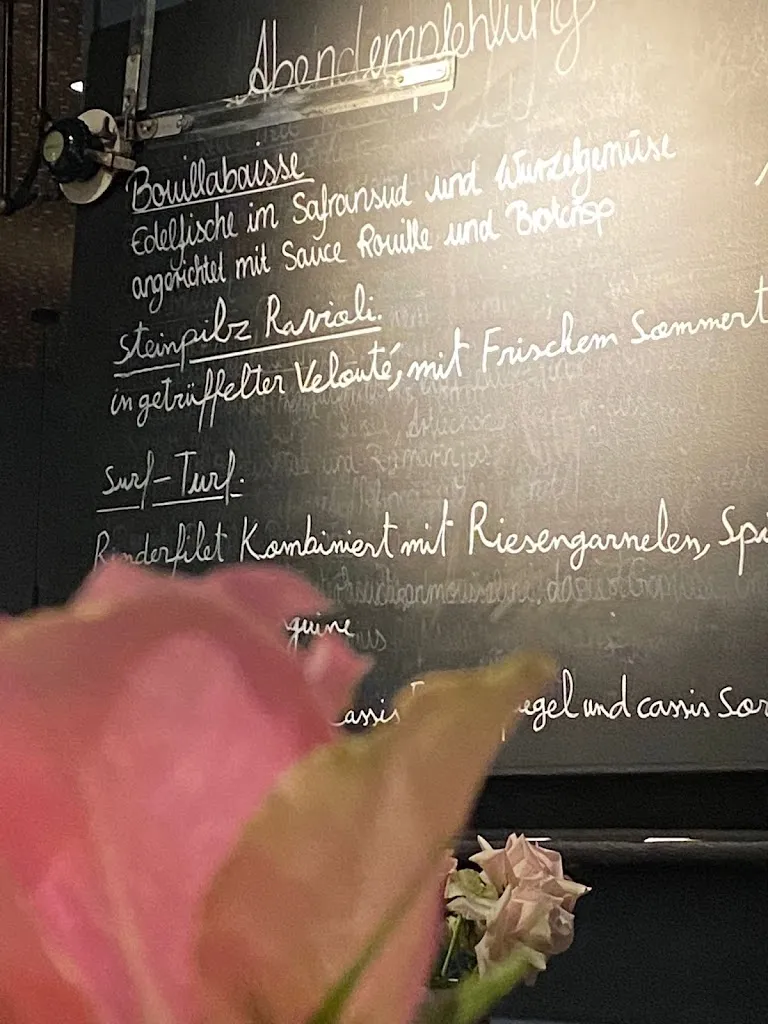 Abendempfehlung
Bouillabaisse
Edelfische im Safransud und Wurzelgemüse
angerichtet mit Sauce Rouille und Brotcrisp
Steinpilz Ravioli.
in getrüffelter Velouté, mit Frischem Sommert
Surf-Turf.
Rinderfilet Kombiniert mit Riesengarnelen, Spi
guine
cassis egel und cassis Sor